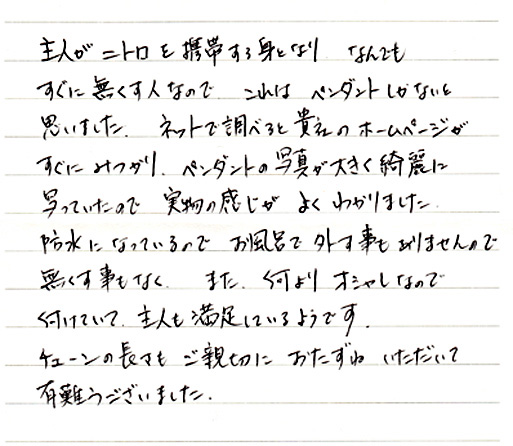 主人がニトロを携帯する身となり なんでも
すぐに無くす人なので これは ペンダントしかないと
思いました. ネットで調べると貴社のホームページが
すぐにみつかり. ペンダントの写真が大きく綺麗に
写っていたので 実物の感じが よくわかりました.
防水になっているので お風呂で外す事もありませんので
無くす事もなく. また. 何よりオシャレなので
付けていて. 主人も満足しているようです.
チェーンの長さも ご親切に おたずね いただいて
有難うございました.